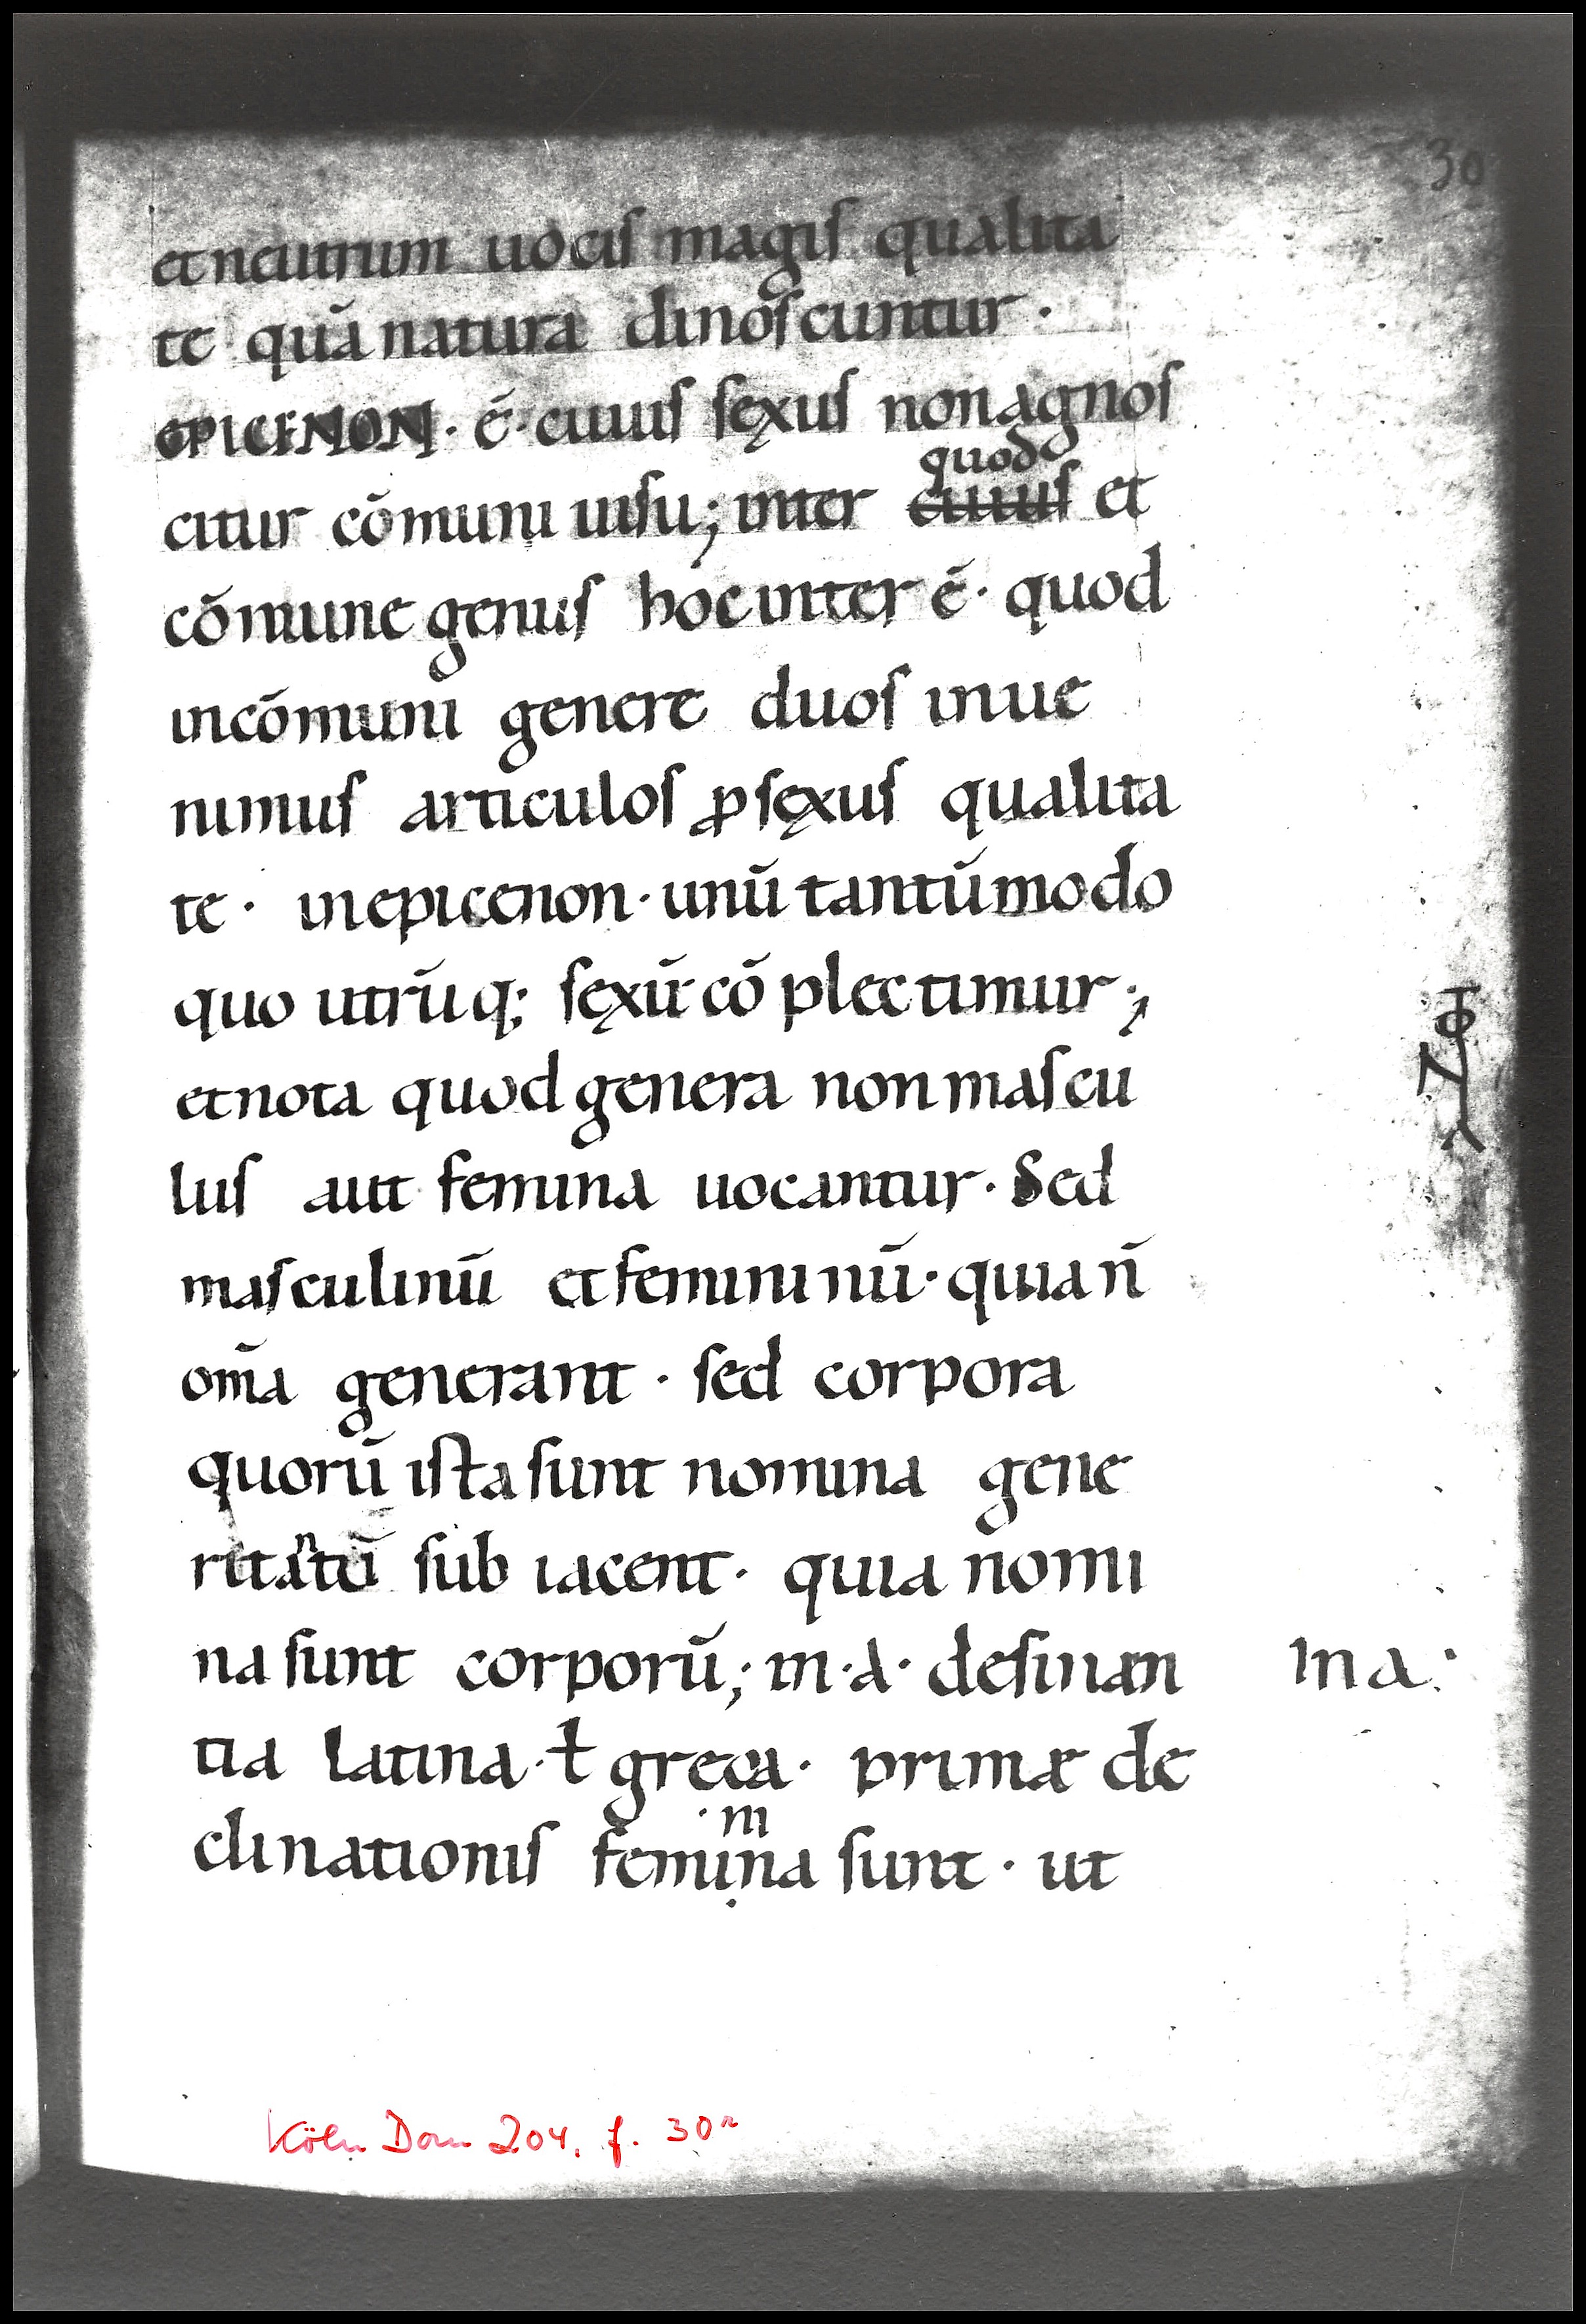 30
et neutrum uocis magis qualita
te quā natura dinoscuntur ·
EPICENON · ē · cuius sęxus non agnos
quod
citur cōmuni uisu; inter cuius et
cōmune genus hoc inter ē · quod
in cōmuni genere duos inue
nimus articulos ꝓ sęxus qualita
te · in epicenon · unū tantūmodo
quo utrūq; sęxū cōplectimur ;
et nota quod genera non mascu
lus aut femina uocantur · Sed
masculinū et femininū · quia n̄
om̄a generant · sed corpora
quorū ista sunt nomina gene
n
ritatū sub iacent · quia nomi
na sunt corporū; in · a · desinan
in a ·
tia latina · ł greca · primæ de
· m
clinationis femina sunt · ut
Köln Dom 204, f. 30r